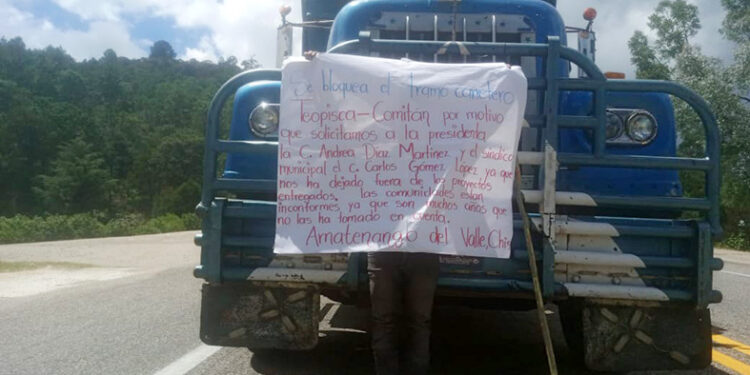 Se bloquea el tramo carretero
Teopisca-Comitán por motivo
que solicitamos a la presidenta
la C. Andrea Díaz Martínez y el síndico
municipal el c. Carlos Gómez López ya que
nos ha dejado fuera de los proyectos
entregados. las comunidades estan
inconformes ya que son muchos años que
no las ha tomado en cuenta.
Amatenango del Valle, Chis